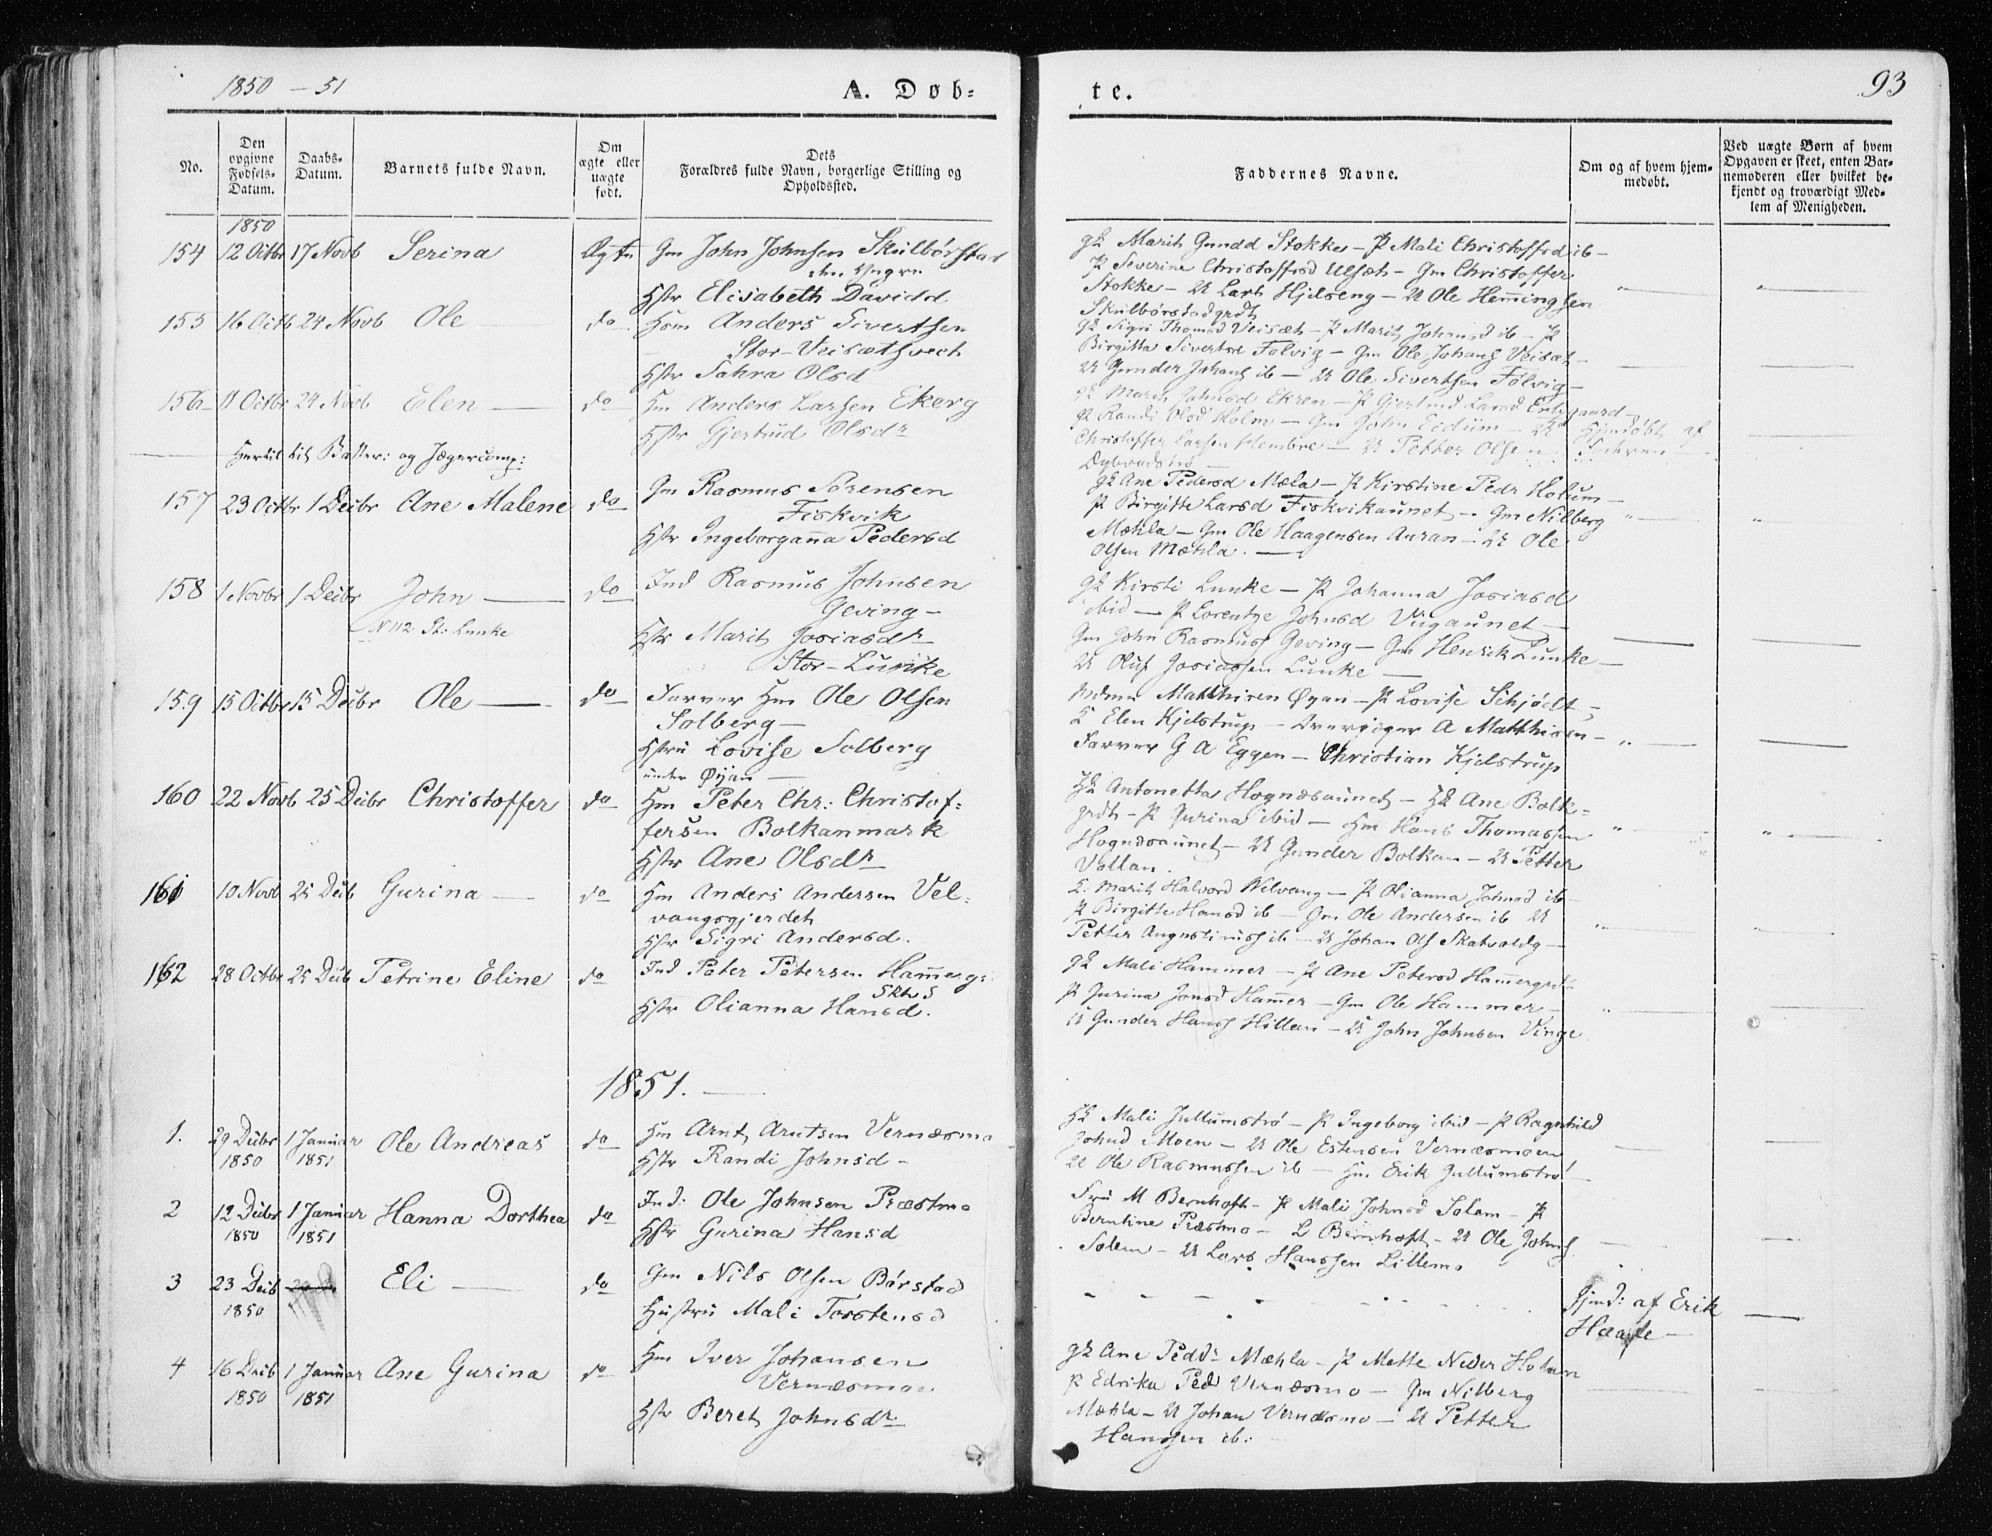 1850 - 51
A. Døb-
te.
93
No.
Den opgivne Fødsels-Datum.
Daabs-Datum.
Barnets fulde Navn.
Om ægte eller uægte født.
Dets Forældres fulde Navn, borgerlige Stilling og Opholdssted.
Faddernes Navne.
Om og af hvem hjemmedøbt.
Ved uægte Børn af hvem Opgaven er skeet, enten Barnemoderen eller hvilket bekjendt og troværdigt Medlem af Menigheden.
1850
154 12 Octbr 17 Novb Serina Ægte Gm John Johnsen Skulbørstad
Hstr Elisabeth Davidd
gk Marit Gundd Stokke - P Mali Christoffrd ib -
P Severine Christoffrsd Ulseth - Gm Christoffer
Stokke - U Lars Hjelseng - U Ole Hemingsen
Skulbørstadgrdt
155 16 Octb 24 Novb Ole do Hsm Anders Sivertsen
Stor-Veisæthvech
Hstr Sahra Olsd
gk Sigri Thomasd Veisæt - P Marit Johansd ib - P
Birgitta Sivertsd Følvig - Gm Ole Johans Veisæt -
U Gunder Johans ib - U Ole Sivertsen Følvig -
156 11 Octbr 24 Novb Elen do Hm Anders Larsen Ekerg
Hstr Gjertrud Olsdr
P Randi Olsd Holm - Gm John Eidum -
Christoffer Larsen Hembre - U Petter Olsen
Hjemdøbt af
Hertil til Batter: og Jægercomp:
157 23 Octbr 1 Decbr Ane Malene do Gm Rasmus Sørensen
Fiskvik
Hstr Ingeborganna Pedersd
gk Ane Pedersd Mæla - P Kirstine Pedr Holum -
P Birgitte Larsd Fiskvikaunet - Gm Nilberg
Mæhla - Gm Ole Haagensen Auran - U Ole
Olsen Mæhla.
158 1 Novbr 1 Decbr John do Ind Rasmus Johnsen
Geving -
N 112 St: Lunke
Hstr Marit Josiasdr
Stor-Lunke
gk Kirsti Lunke - P Johanna Josiasd
ibid - P Lorentze Johnsd Vigaunet -
Gm John Rasmuss Geving - Gm Henrik Lunke -
U Oluf Josiassen Lunke -
159 15 Octbr 15 Decbr Ole do Farver Hm Ole Olsen
Solberg -
Hstru Lovise Solberg
under Øyan
Matthisen Øyan - P Lovise Schjødt -
E Elen Kjelstrup - A Matthisen -
Farver G A Eggen - Christian Kjelstrup
160 22 Novb 25 Decbr Christoffer do Hm Peter Chr: Christof-
fersen Bolkanmark
Hstr Ane Olsdr
Hk Antonetta Hognæsaunet - Hk Ane Bolk-
grdt - P Gurina ibid - Hm Hans Thomassen
Hognæsaunet - U Gunder Bolkan - U Petter
Vollan.
161 10 Novb 25 Decb Gurina do Hm Anders Andersen Vel-
vangsgjerdet
Hstr Sigri Andersd.
E. Marit Halvord Velvang - P Olianna Johnsd ib -
P Birgitte Hansd ib - Gm Ole Andersen ib U
Petter Augustinuss ib - U Johan Ols Skatvoldg -
162 28 Octbr 25 Decb Petrine Eline do Ind Peter Petersen Hamerg:
Hstr Olianna Hansd.
gk Mali Hammer - P Ane Petersd Hamergrdt
P Gurina Jonsd Hamer - Gm Ole Hammer -
U Gunder Hanss Hillan - U John Johnsen Vinge
1851.
1. 29 Decbr 1850 1 Januar 1851 Ole Andreas do Hm Arnt Arntsen Vernæsmo
Hstr Randi Johnsd -
Hk Mali Jullumstrø - P Ingeborg ibid - P Ragnhild
Johnsd Moen - U Ole Estensen Vernæsmoen
U Ole Rasmussen ib - Hm Erik Jullumstrø -
2 12 Decbr 1850 1 Januar 1851 Hanna Dorthea do Ind: Ole Johnsen Præstmo
Hstr Gurina Hansd
Fru M Bernhoft - P Mali Johnsd Solem - P
Berntine Præstmo - L Bernhoft - U Ole Johns
Solem - U Lars Hanssen Lillemo
3 23 Decb 1850 Eli do Gm Nils Olsen Børstad
Hustru Mali Torstensd
Hjemd: af Erik
4 16 Decb 1850 1 Januar 1851 Ane Gurina do Hm Iver Johansen
Vernæsmoe
Hstr Beret Johnsdr
gk Ane Peddr Mæhla - P Mette Neder Holum
P Edrika Ped Vernæsmo - Gm Nilberg
Mæhla - U Johan Vernæsmo - U Petter
Hanssen ib.